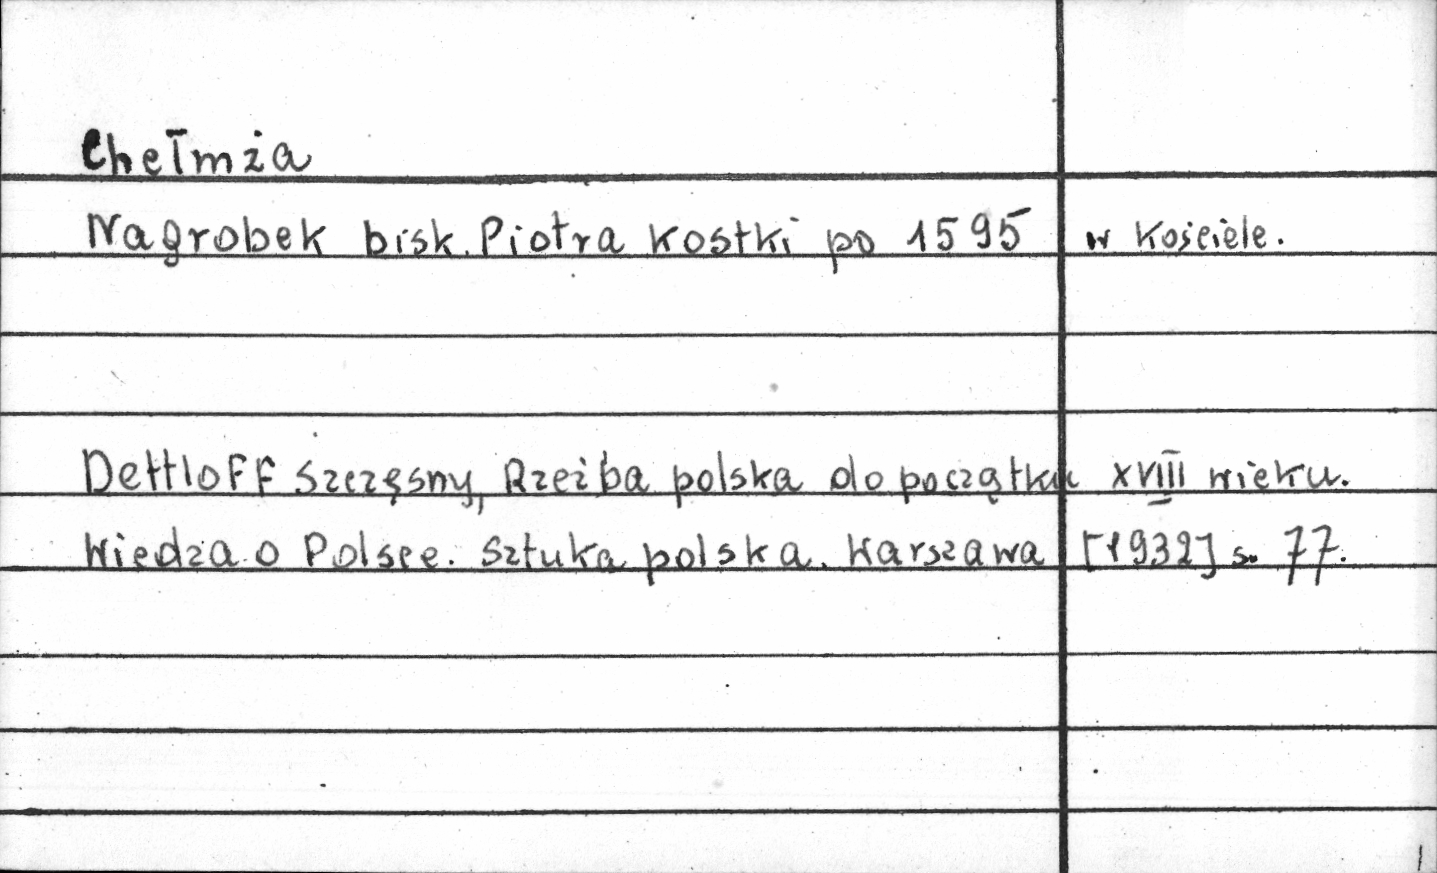 Chełmża
Nagrobek bisk. Piotra Kostki po 1595 w Kościele.
Dettloff Szczęsny, Rzeźba polska do początku XVIII wieku.
Wiedza o Polsce. Sztuka polska. Warszawa [1932] s. 77.